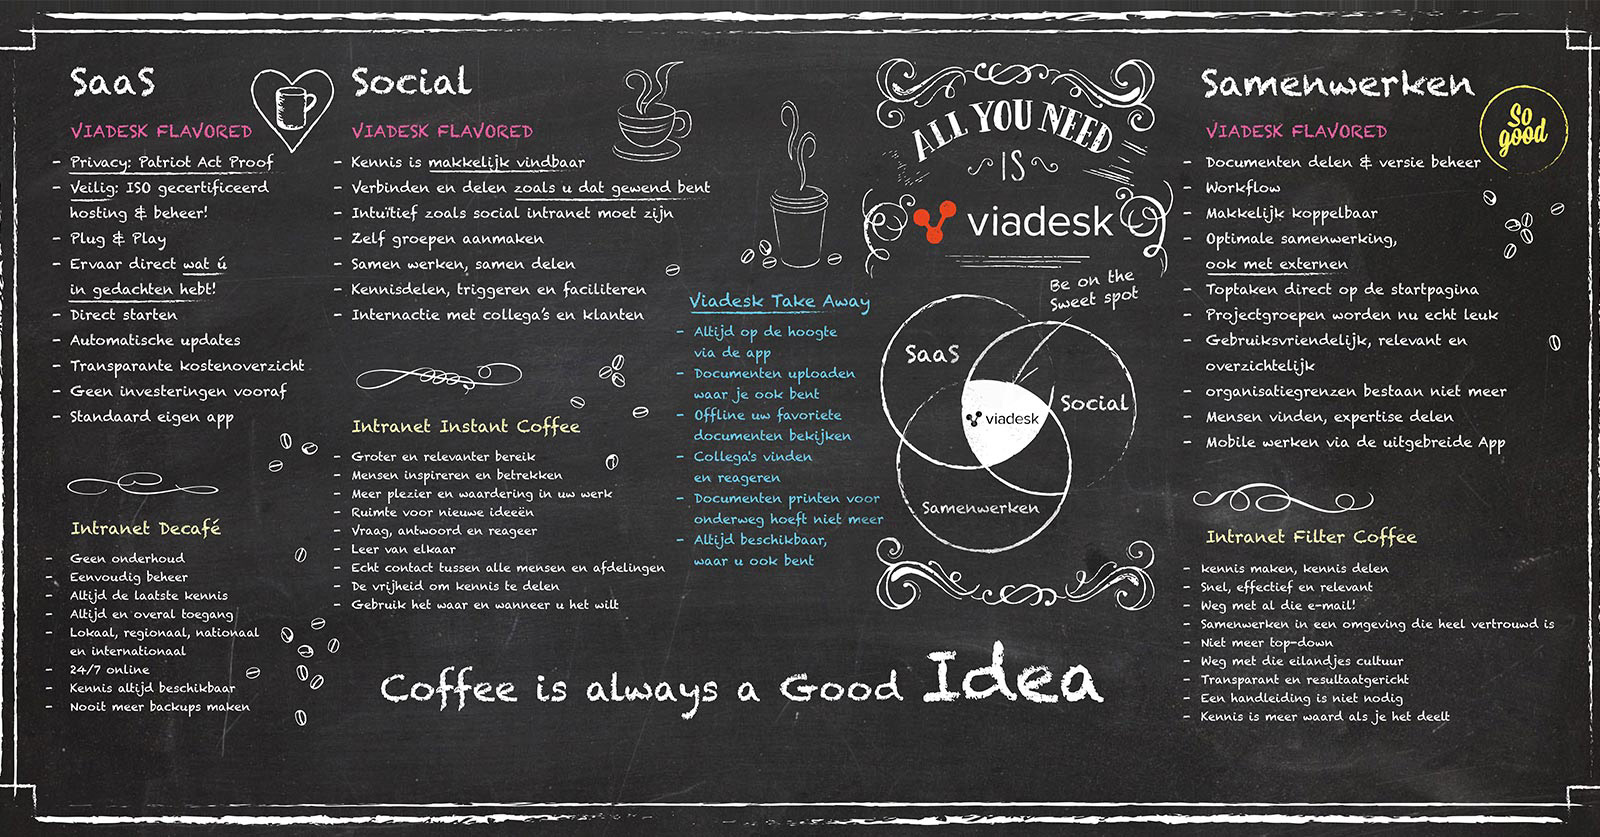 SaaS
VIADESK FLAVORED
- Privacy: Patriot Act Proof
- Veilig: ISO gecertificeerd
hosting & beheer!
- Plug & Play
- Ervaar direct wat ú
in gedachten hebt!
- Direct starten
- Automatische updates
- Transparante kostenoverzicht
- Geen investeringen vooraf
- Standaard eigen app
Intranet Decafé
- Geen onderhoud
- Eenvoudig beheer
- Altijd de laatste kennis
- Altijd en overal toegang
- Lokaal, regionaal, nationaal
en internationaal
- 24/7 online
- Kennis altijd beschikbaar
- Nooit meer backups maken
Social
VIADESK FLAVORED
- Kennis is makkelijk vindbaar
- Verbinden en delen zoals u dat gewend bent
- Intuïtief zoals social intranet moet zijn
- Zelf groepen aanmaken
- Samen werken, samen delen
- Kennisdelen, triggeren en faciliteren
- Internactie met collega's en klanten
Intranet Instant Coffee
- Groter en relevanter bereik
- Mensen inspireren en betrekken
- Meer plezier en waardering in uw werk
- Ruimte voor nieuwe ideeën
- Vraag, antwoord en reageer
- Leer van elkaar
- Echt contact tussen alle mensen en afdelingen
- De vrijheid om kennis te delen
- Gebruik het waar en wanneer u het wilt
Viadesk Take Away
- Altijd op de hoogte
via de app
- Documenten uploaden
waar je ook bent
- Offline uw favoriete
documenten bekijken
- Collega's vinden
en reageren
- Documenten printen voor
onderweg hoeft niet meer
- Altijd beschikbaar,
waar u ook bent
ALL YOU NEED
IS
viadesk
Be on the
Sweet spot
SaaS
Social
viadesk
Samenwerken
Coffee is always a Good Idea
Samenwerken
So
good
VIADESK FLAVORED
- Documenten delen & versie beheer
- Workflow
- Makkelijk koppelbaar
- Optimale samenwerking,
ook met externen
- Toptaken direct op de startpagina
- Projectgroepen worden nu echt leuk
- Gebruiksvriendelijk, relevant en
overzichtelijk
- organisatiegrenzen bestaan niet meer
- Mensen vinden, expertise delen
- Mobile werken via de uitgebreide App
Intranet Filter Coffee
- kennis maken, kennis delen
- Snel, effectief en relevant
- Weg met al die e-mail!
- Samenwerken in een omgeving die heel vertrouwd is
- Niet meer top-down
- Weg met die eilandjes cultuur
- Transparant en resultaatgericht
- Een handleiding is niet nodig
- Kennis is meer waard als je het deelt